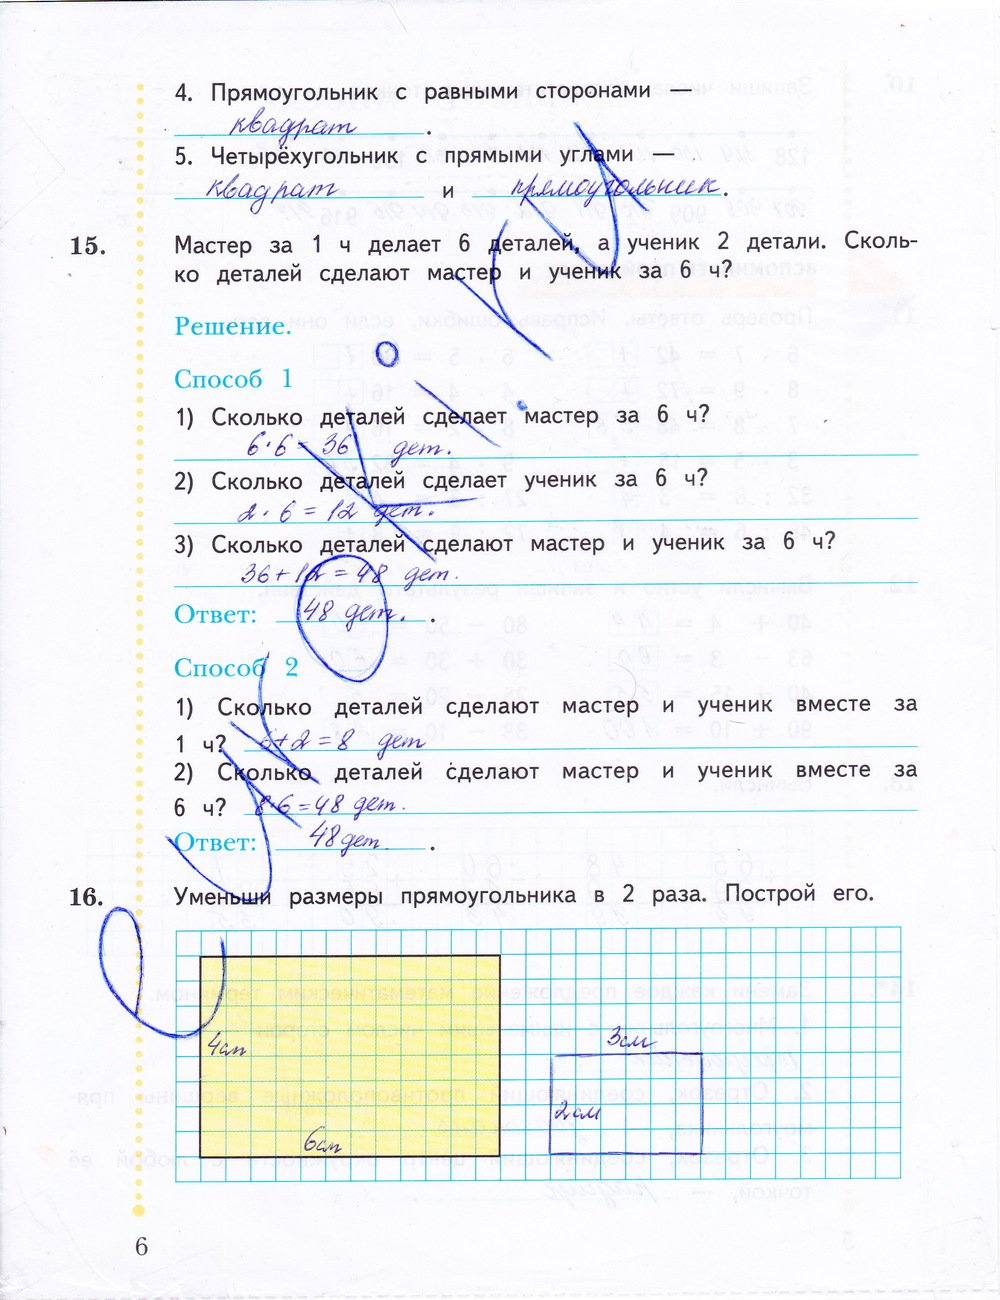 4. Прямоугольник с равными сторонами —
квадрат .
5. Четырёхугольник с прямыми углами —
квадрат и прямоугольник.
15. Мастер за 1 ч делает 6 деталей, а ученик 2 детали. Сколь-
ко деталей сделают мастер и ученик за 6 ч?
Решение.
Способ 1
1) Сколько деталей сделает мастер за 6 ч?
6·6=36 дет.
2) Сколько деталей сделает ученик за 6 ч?
2·6=12 дет.
3) Сколько деталей сделают мастер и ученик за 6 ч?
36+12=48 дет.
Ответ: 48 дет. .
Способ 2
1) Сколько деталей сделают мастер и ученик вместе за
1 ч? 6+2=8 дет
2) Сколько деталей сделают мастер и ученик вместе за
6 ч? 8·6=48 дет.
Ответ: 48 дет. .
16. Уменьши размеры прямоугольника в 2 раза. Построй его.
3см
4см
2см
6см
6